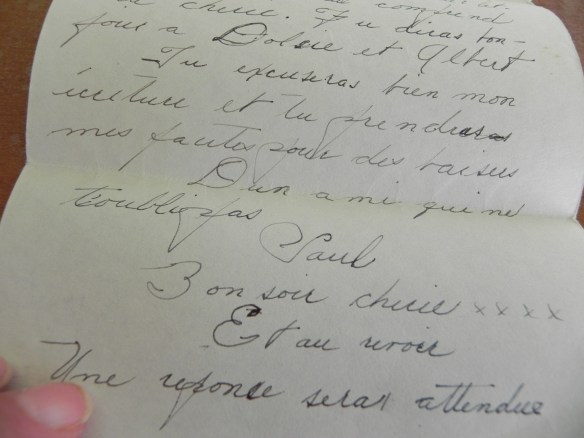 comprend
cherie. Tu diras bon-
jour a Dolore et Albert
Tu excuseras bien mon
écriture et tu prenderas
mes fautes pour des baisers
D'un ami qui ne
t'oublie pas
Paul
Bonsoir cherie xxxx
Et au revoir
Une reponse seras attendue